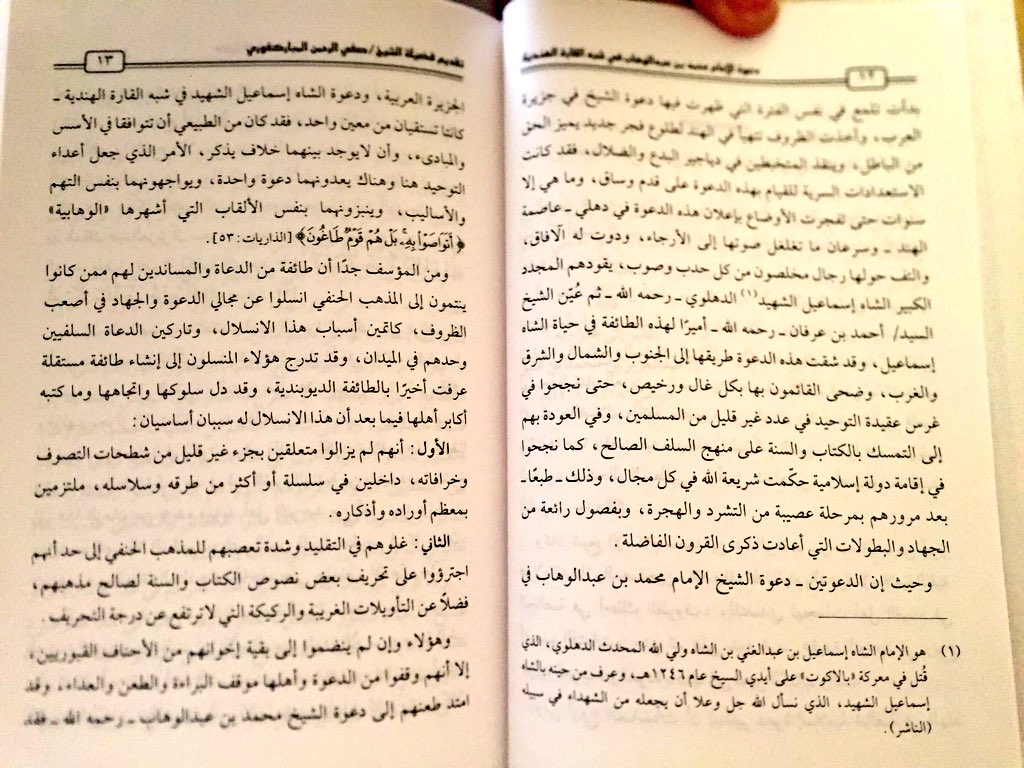 دعوة الإمام محمد بن عبدالوهاب في شبه القارة الهندية
١٢
بدأت تلمع في نفس الفترة التي ظهرت فيها دعوة الشيخ في جزيرة
العرب، وأخذت الظروف تتهيأ في الهند لطلوع فجر جديد يميز الحق
من الباطل، وينقذ المتخبطين في دياجير البدع والضلال. فقد كانت
الاستعدادات السرية للقيام بهذه الدعوة على قدم وساق، وما هي إلا
سنوات حتى تفجرت الأوضاع بإعلان هذه الدعوة في دهلي ـ عاصمة
الهند ـ وسرعان ما تغلغل صوتها إلى الأرجاء، ودوت له الآفاق،
والتف حولها رجال مخلصون من كل حدب وصوب، يقودهم المجدد
الكبير الشاه إسماعيل الشهيد(١) الدهلوي ـ رحمه الله ـ ثم عُيّن الشيخ
السيد/ أحمد بن عرفان ـ رحمه الله ـ أميرًا لهذه الطائفة في حياة الشاه
إسماعيل، وقد شقت هذه الدعوة طريقها إلى الجنوب والشمال والشرق
والغرب، وضحى القائمون بها بكل غال ورخيص، حتى نجحوا في
غرس عقيدة التوحيد في عدد غير قليل من المسلمين، وفي العودة بهم
إلى التمسك بالكتاب والسنة على منهج السلف الصالح، كما نجحوا
في إقامة دولة إسلامية حكّمت شريعة الله في كل مجال، وذلك ـ طبعًا ـ
بعد مرورهم بمرحلة عصيبة من التشرد والهجرة، وبفصول رائعة من
الجهاد والبطولات التي أعادت ذكرى القرون الفاضلة .
وحيث إن الدعوتين ـ دعوة الشيخ الإمام محمد بن عبدالوهاب في
(١) هو الإمام الشاه إسماعيل بن عبدالغني بن الشاه ولي الله المحدث الدهلوي، الذي
قُتل في معركة «بالاكوت» على أيدي السيخ عام ١٢٤٦هـ، وعرف من حينه بالشاه
إسماعيل الشهيد، الذي نسأل الله جل وعلا أن يجعله من الشهداء في سبيله
(الناشر).
تقديم فضيلة الشيخ/ صفي الرحمن المباركفوري
١٣
الجزيرة العربية، ودعوة الشاه إسماعيل الشهيد في شبه القارة الهندية ـ
كانتا تستقيان من معين واحد، فقد كان من الطبيعي أن تتوافقا في الأسس
والمبادىء، وأن لايوجد بينهما خلاف يذكر، الأمر الذي جعل أعداء
التوحيد هنا وهناك يعدونهما دعوة واحدة، ويواجهونهما بنفس التهم
والأساليب، وينبزونهما بنفس الألقاب التي أشهرها «الوهابية»
﴿أَتَوَاصَوْا بِهِۦ بَلْ هُمْ قَوْمٌ طَاغُونَ﴾ [الذاريات: ٥٣].
ومن المؤسف جدًا أن طائفة من الدعاة والمساندين لهم ممن كانوا
ينتمون إلى المذهب الحنفي انسلوا عن مجالي الدعوة والجهاد في أصعب
الظروف، كاتمين أسباب هذا الانسلال، وتاركين الدعاة السلفيين
وحدهم في الميدان، وقد تدرج هؤلاء المنسلون إلى إنشاء طائفة مستقلة
عرفت أخيرًا بالطائفة الديوبندية، وقد دل سلوكها واتجاهها وما كتبه
أكابر أهلها فيما بعد أن هذا الانسلال له سببان أساسيان :
الأول: أنهم لم يزالوا متعلقين بجزء غير قليل من شطحات التصوف
وخرافاته، داخلين في سلسلة أو أكثر من طرقه وسلاسله، ملتزمين
بمعظم أوراده وأذكاره .
الثاني: غلوهم في التقليد وشدة تعصبهم للمذهب الحنفي إلى حد أنهم
اجترؤوا على تحريف بعض نصوص الكتاب والسنة لصالح مذهبهم،
فضلاً عن التأويلات الغريبة والركيكة التي لاترتفع عن درجة التحريف .
وهؤلاء وإن لم ينضموا إلى بقية إخوانهم من الأحناف القبوريين،
إلا أنهم وقفوا من الدعوة وأهلها موقف البراءة والطعن والعداء، وقد
امتد طعنهم إلى دعوة الشيخ محمد بن عبدالوهاب ـ رحمه الله ـ فقد